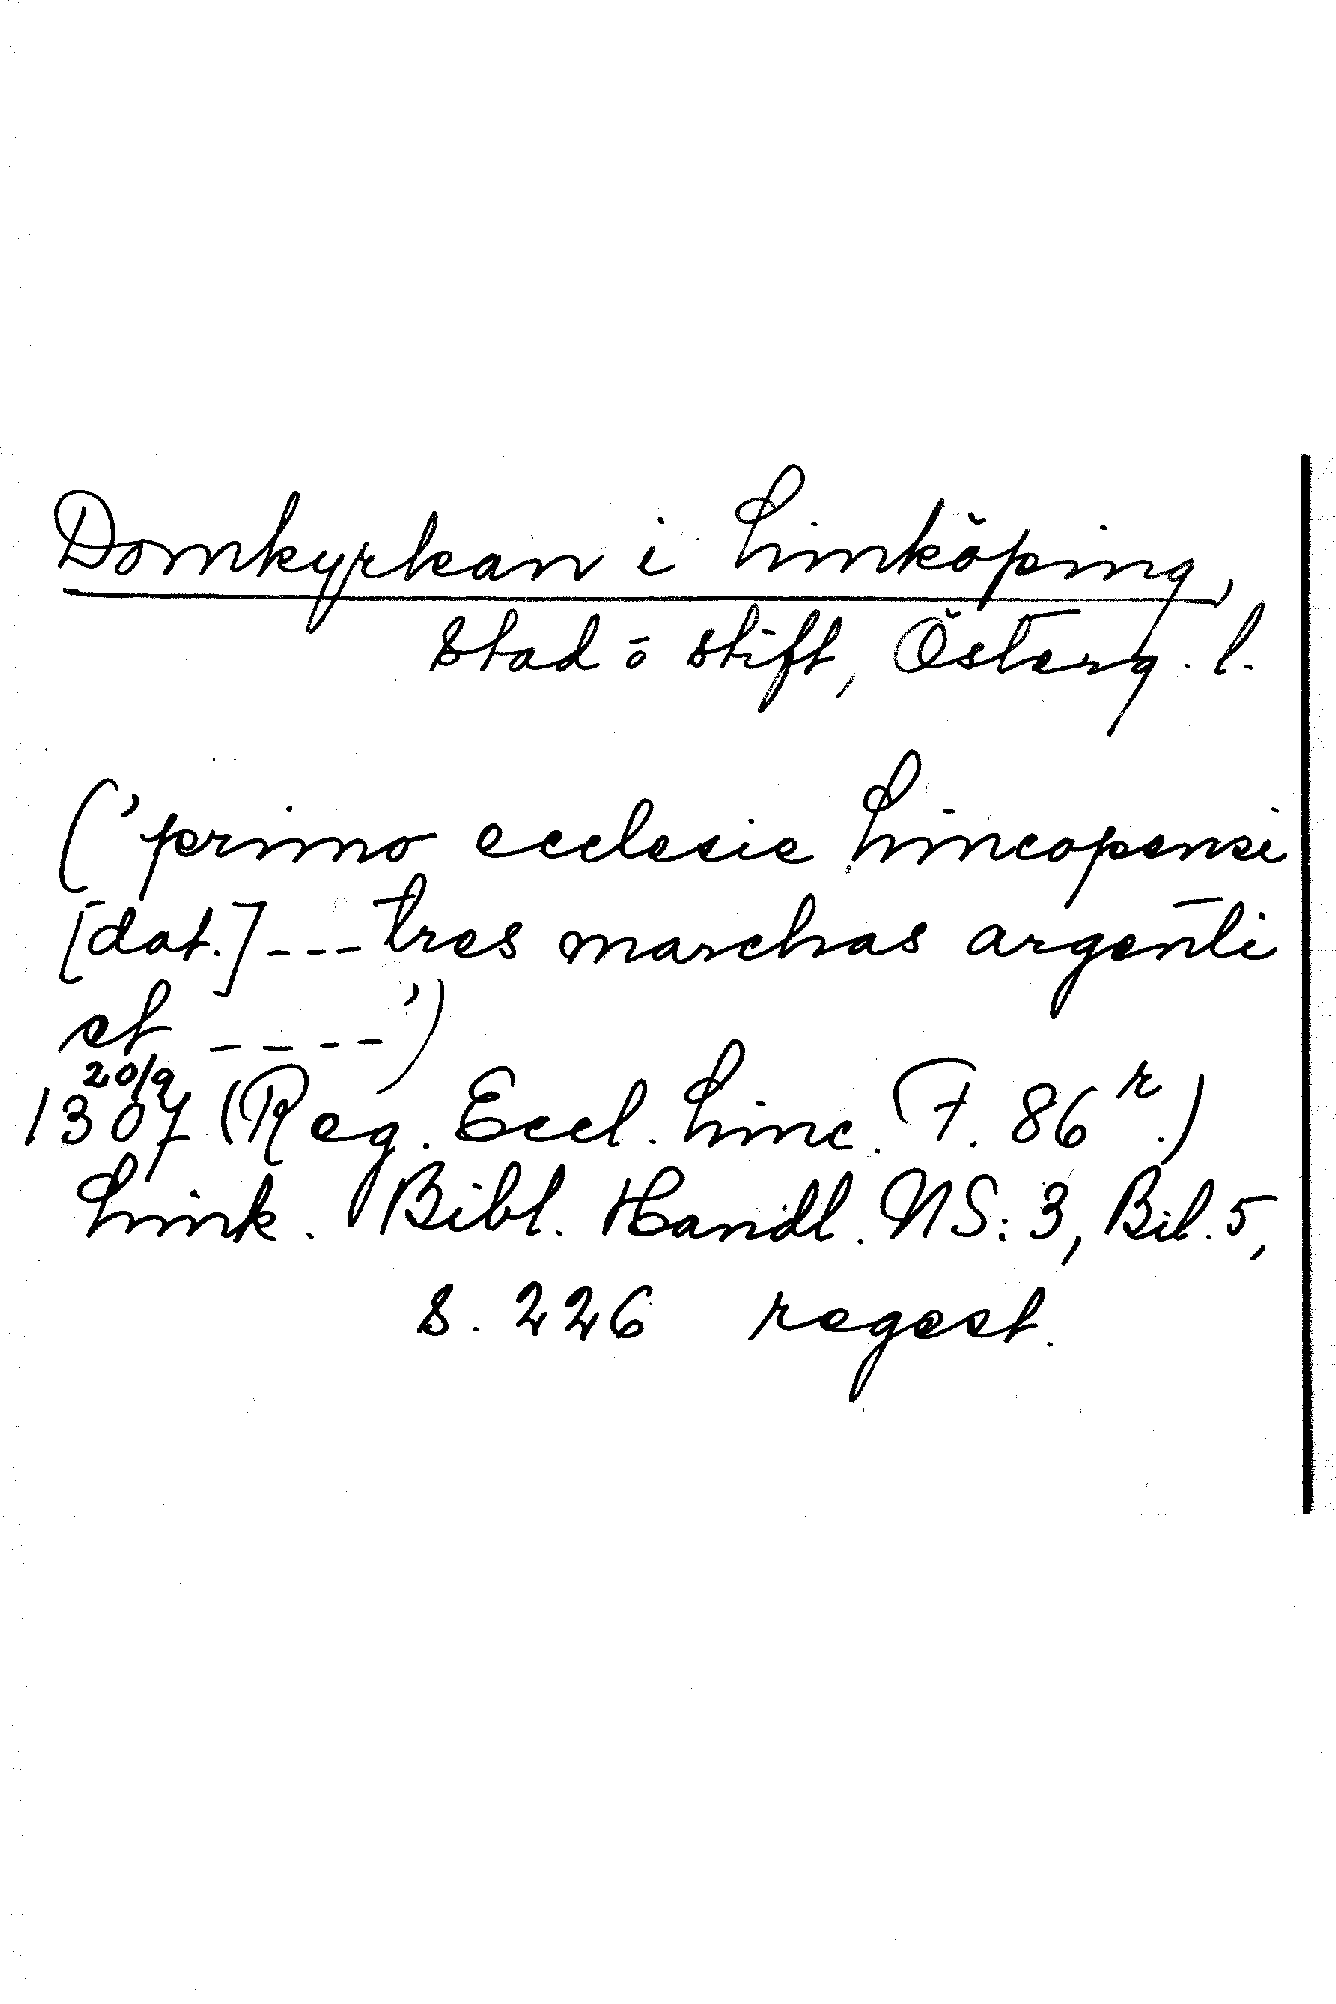 Domkyrkan i Linköping,
stad o stift, Österg. l.
('primo ecclesie Lincopensi
[dat.] --- tres marchas argenti
et ----')
20/9
1307 (Reg. Eccl. Linc. F. 86r.)
Link. Bibl. Handl. NS: 3, Bil. 5,
s. 226 regest.